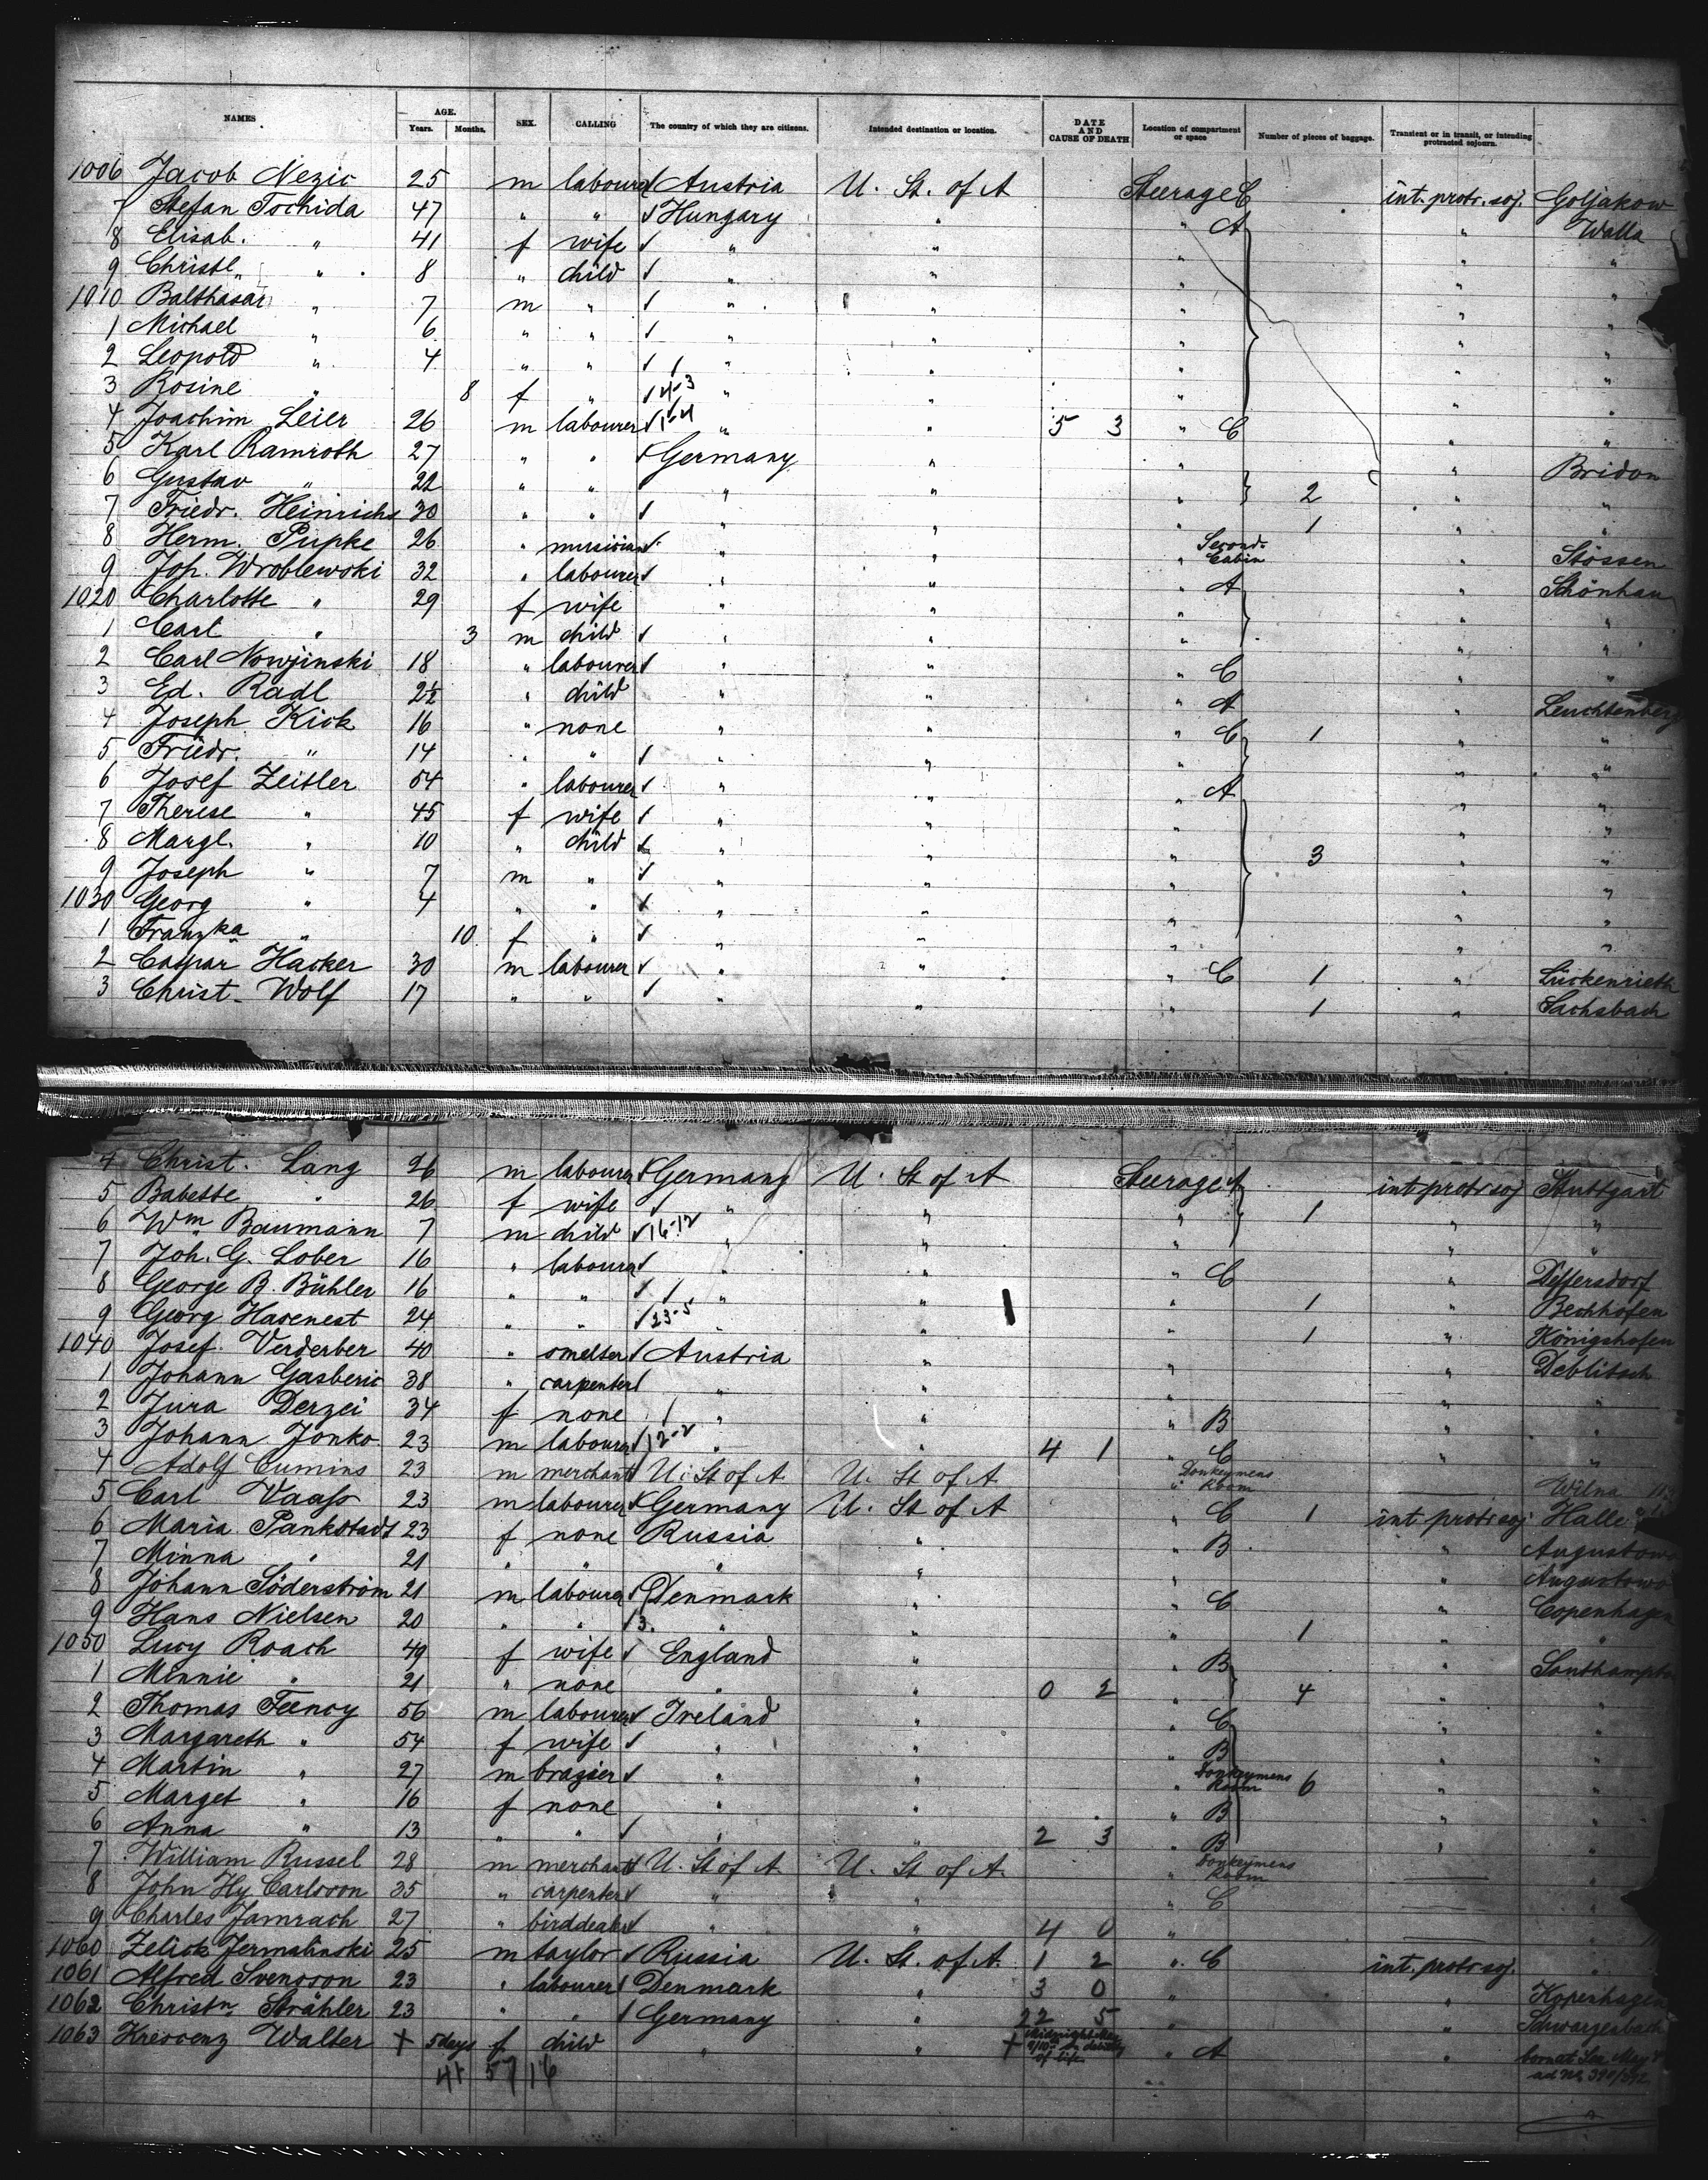 NAMES AGE. Years. Months. SEX. CALLING The country of which they are citizens. Intended destination or location. DATE AND CAUSE OF DEATH Location of compartment or space Number of pieces of baggage. Transient or in transit, or intending protracted sojourn.
1006 Jacob Nezic 25 m labourer Austria U. St. of A Steerage C int. protr. soj. Goljakow
7 Stefan Tochida 47 " " Hungary " " A " Walla
8 Elisab. " 41 f wife " " " " "
9 Christl. " 8 " child " " " " "
1010 Balthasar " 7 m " " " " " "
1 Michael " 6 " " " " " " "
2 Leopold " 4 " " " " " " "
3 Rosine " 8 f " 4-3 " " " " "
4 Joachim Leier 26 m labourer " " 5 3 " C " "
5 Karl Ramroth 27 " " Germany " " " Bridon
6 Gustav " 22 " " " " " 2 " "
7 Friedr. Heinrichs 30 " " " " " 1 " "
8 Herm. Pupke 26 " musician " " " Second Cabin " Stössen
9 Joh. Wroblewski 32 " labourer " " " A " Schönhau
1020 Charlotte " 29 f wife " " " " "
1 Carl " 3 m child " " " " "
2 Carl Nowjinski 18 " labourer " " " C " "
3 Ed. Radl 2½ " child " " " A " Leuchtenberg
4 Joseph Kick 16 " none " " " C 1 " "
5 Friedr. " 14 " " " " " " "
6 Josef Zeitler 54 " labourer " " " A " "
7 Therese " 45 f wife " " " " "
8 Margl. " 10 " child " " " 3 " "
9 Joseph " 7 m " " " " " "
1030 Georg " 4 " " " " " " "
1 Franzka " 10 f " " " " " "
2 Caspar Hacker 30 m labourer " " " C 1 " Lückenrieth
3 Christ. Wolf 17 " " " " " 1 " Sachsbach
4 Christ. Lang 26 m labourer Germany U. St of A Steerage A int protr soj Stuttgart
5 Babette " 26 f wife " " " 1 " "
6 Wm Baumann 7 m child 16-12 " " " " "
7 Joh. G. Lober 16 " labourer " " " C " Deffersdorf
8 George B. Bühler 16 " " " " " 1 " Bechhofen
9 Georg Hasenest 24 " " 23-5 " " 1 " Königshofen
1040 Josef Verderber 40 " smelter Austria " " " Deblitsch
1 Johann Gasberic 38 " carpenter " " " " "
2 Jura Derzei 34 f none " " " B " "
3 Johann Jonko 23 m labourer 12-2 " " 4 1 " C " "
4 Adolf Cumins 23 m merchant U. St of A U. St of A " Donkeymens Room Wilna
5 Carl Vaass 23 m labourer Germany U. St of A " C 1 int protr soj Halle
6 Maria Pankstadt 23 f none Russia " " B " Augustowo
7 Minna " 21 " " " " " " Augustowo
8 Johann Söderström 21 m labourer Denmark " " C " Copenhagen
9 Hans Nielsen 20 " " 3. " " " 1 " "
1050 Lucy Roach 49 f wife England " " B " Southampton
1 Minnie " 21 " none " " 0 2 " 4 " "
2 Thomas Feency 56 m labourer Ireland " " C " "
3 Margareth " 54 f wife " " " B " "
4 Martin " 27 m brazier " " " Donkeymens Room 6 " "
5 Marget " 16 f none " " " B " "
6 Anna " 13 " " " " 2 3 " B " "
7 William Russel 28 m merchant U. St of A U. St of A. " Donkeymens Room "
8 John Hy. Carlsson 35 " carpenter " " " C "
9 Charles Jamrach 27 " birddealer " " 4 0 " "
1060 Zelick Jermalinski 25 m taylor Russia U. St. of A. 1 2 " C int. protr soj. "
1061 Alfred Svensson 23 " labourer Denmark " 3 0 " " Kopenhagen
1062 Christn. Strähler 23 " " Germany " 22 5 " " Schwarzenbach
1063 Krescenz Walter + 5 days f child " " + Midnight May 9/10th by debility of life " A " born at Sea May
41 57 16 ad No. 390/392